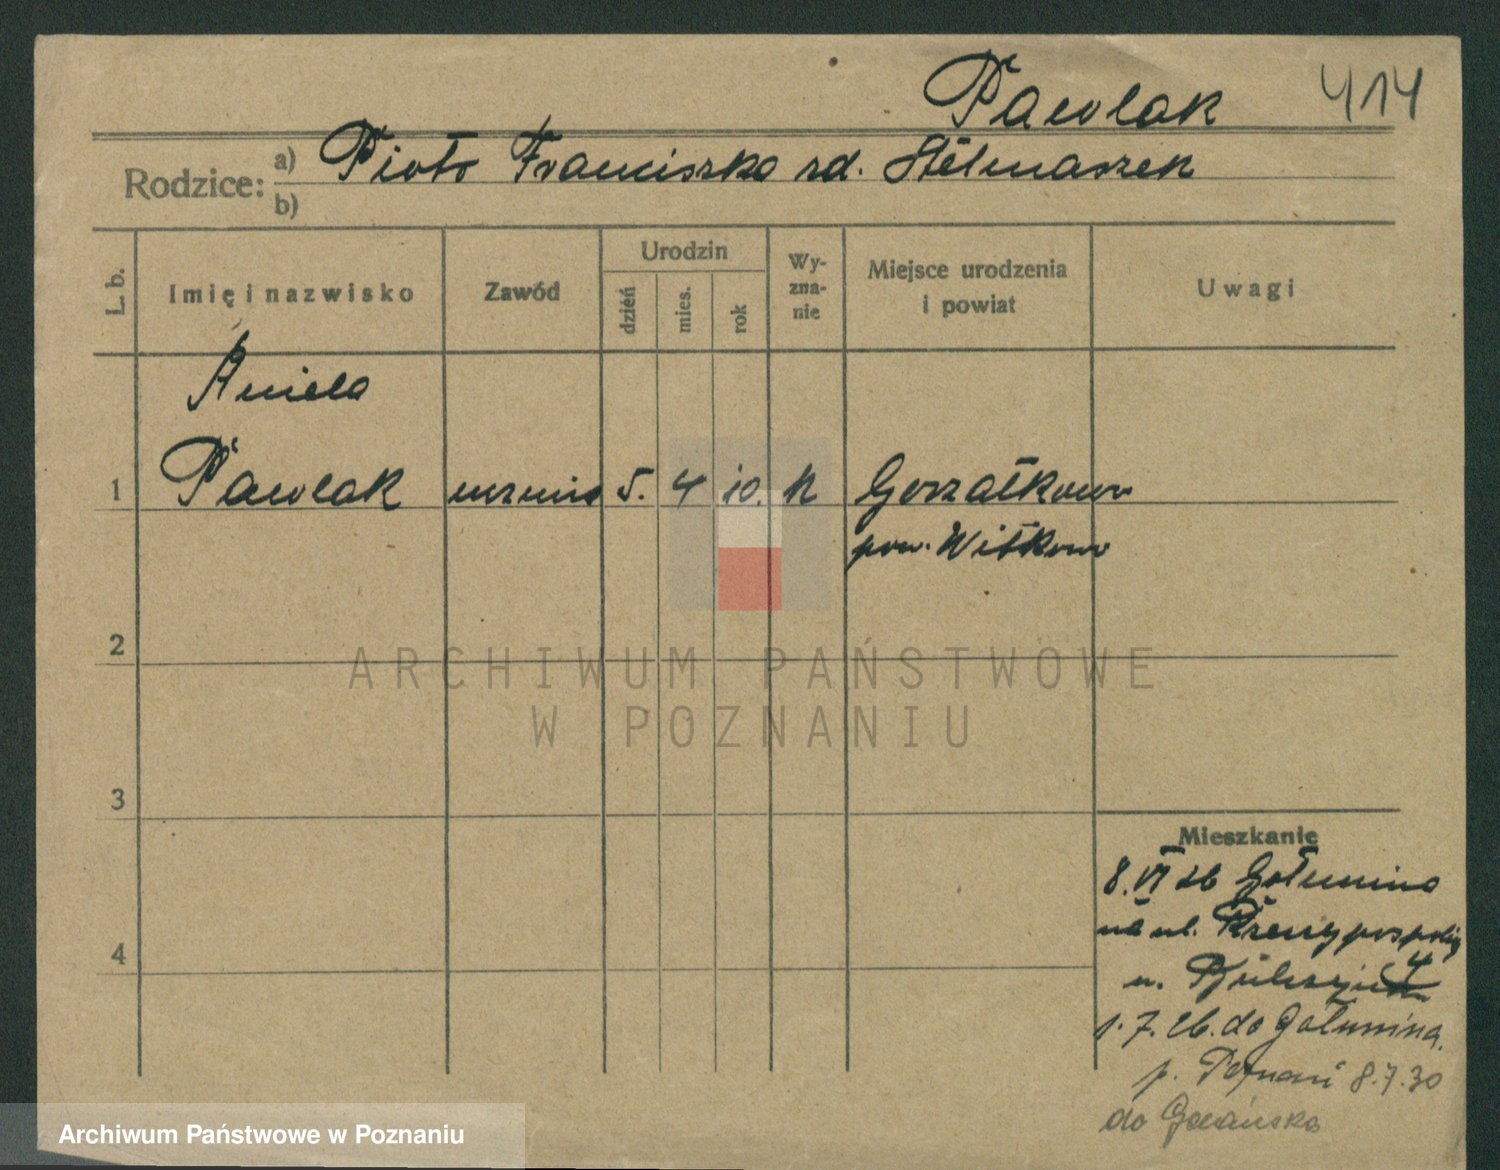 Pawlak 414
Rodzice: a) Piotr Franciszka rd. Stelmaszek
b)
L. b.
Imię i nazwisko
Zawód
Urodzin
dzień
mies.
rok
Wy-
zna-
nie
Miejsce urodzenia
i powiat
Uwagi
Aniela
1 Pawlak uczenic 5. 4 10. k Gorzałkowo
pow. Witkowo
2
3
4
Mieszkanie
8. VI 26 Gołumina
na ul. Rzeczypospolitej
u. 4
1. 7. 26. do Gołumina.
p. Poznań 8.7.30
do Gdańska
ARCHIWUM PAŃSTWOWE
W POZNANIU
Archiwum Państwowe w Poznaniu